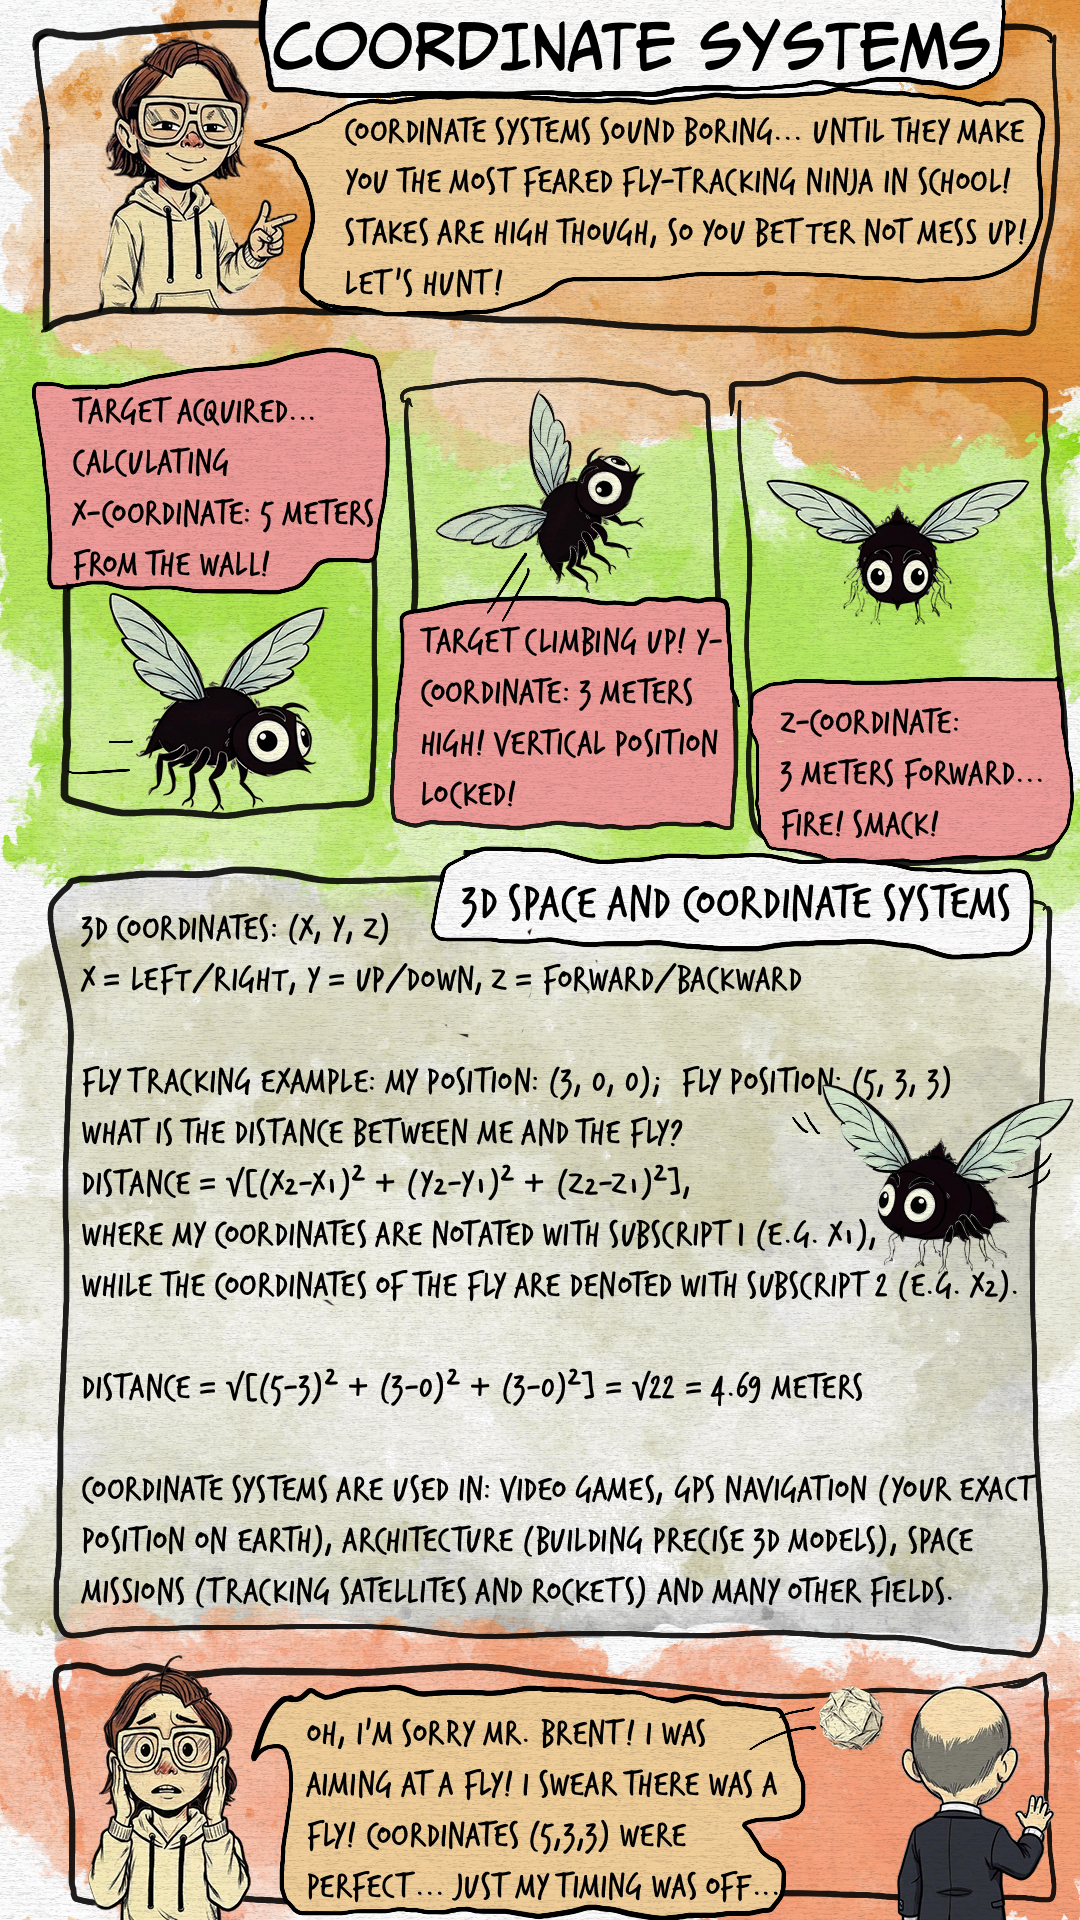 COORDINATE SYSTEMS
COORDINATE SYSTEMS SOUND BORING... UNTIL THEY MAKE
YOU THE MOST FEARED FLY-TRACKING NINJA IN SCHOOL!
STAKES ARE HIGH THOUGH, SO YOU BETTER NOT MESS UP!
LET'S HUNT!
TARGET ACQUIRED...
CALCULATING
X-COORDINATE: 5 METERS
FROM THE WALL!
TARGET CLIMBING UP! Y-
COORDINATE: 3 METERS
HIGH! VERTICAL POSITION
LOCKED!
Z-COORDINATE:
3 METERS FORWARD...
FIRE! SMACK!
3D SPACE AND COORDINATE SYSTEMS
3D COORDINATES: (X, Y, Z)
X = LEFT/RIGHT, Y = UP/DOWN, Z = FORWARD/BACKWARD
FLY TRACKING EXAMPLE: MY POSITION: (3, 0, 0); FLY POSITION: (5, 3, 3)
WHAT IS THE DISTANCE BETWEEN ME AND THE FLY?
DISTANCE = √[(X2-X1)² + (Y2-Y1)² + (Z2-Z1)²],
WHERE MY COORDINATES ARE NOTATED WITH SUBSCRIPT 1 (E.G. X1),
WHILE THE COORDINATES OF THE FLY ARE DENOTED WITH SUBSCRIPT 2 (E.G. X2).
DISTANCE = √[(5-3)² + (3-0)² + (3-0)²] = √22 = 4.69 METERS
COORDINATE SYSTEMS ARE USED IN: VIDEO GAMES, GPS NAVIGATION (YOUR EXACT
POSITION ON EARTH), ARCHITECTURE (BUILDING PRECISE 3D MODELS), SPACE
MISSIONS (TRACKING SATELLITES AND ROCKETS) AND MANY OTHER FIELDS.
OH, I'M SORRY MR. BRENT! I WAS
AIMING AT A FLY! I SWEAR THERE WAS A
FLY! COORDINATES (5,3,3) WERE
PERFECT... JUST MY TIMING WAS OFF...